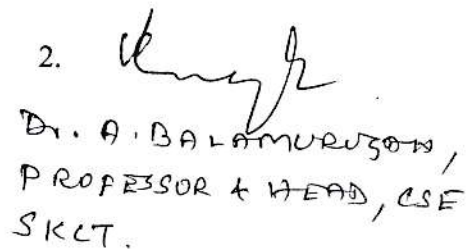 2.
Dr. A. BALAMURUGAN,
PROFESSOR & HEAD, CSE
SKCT.